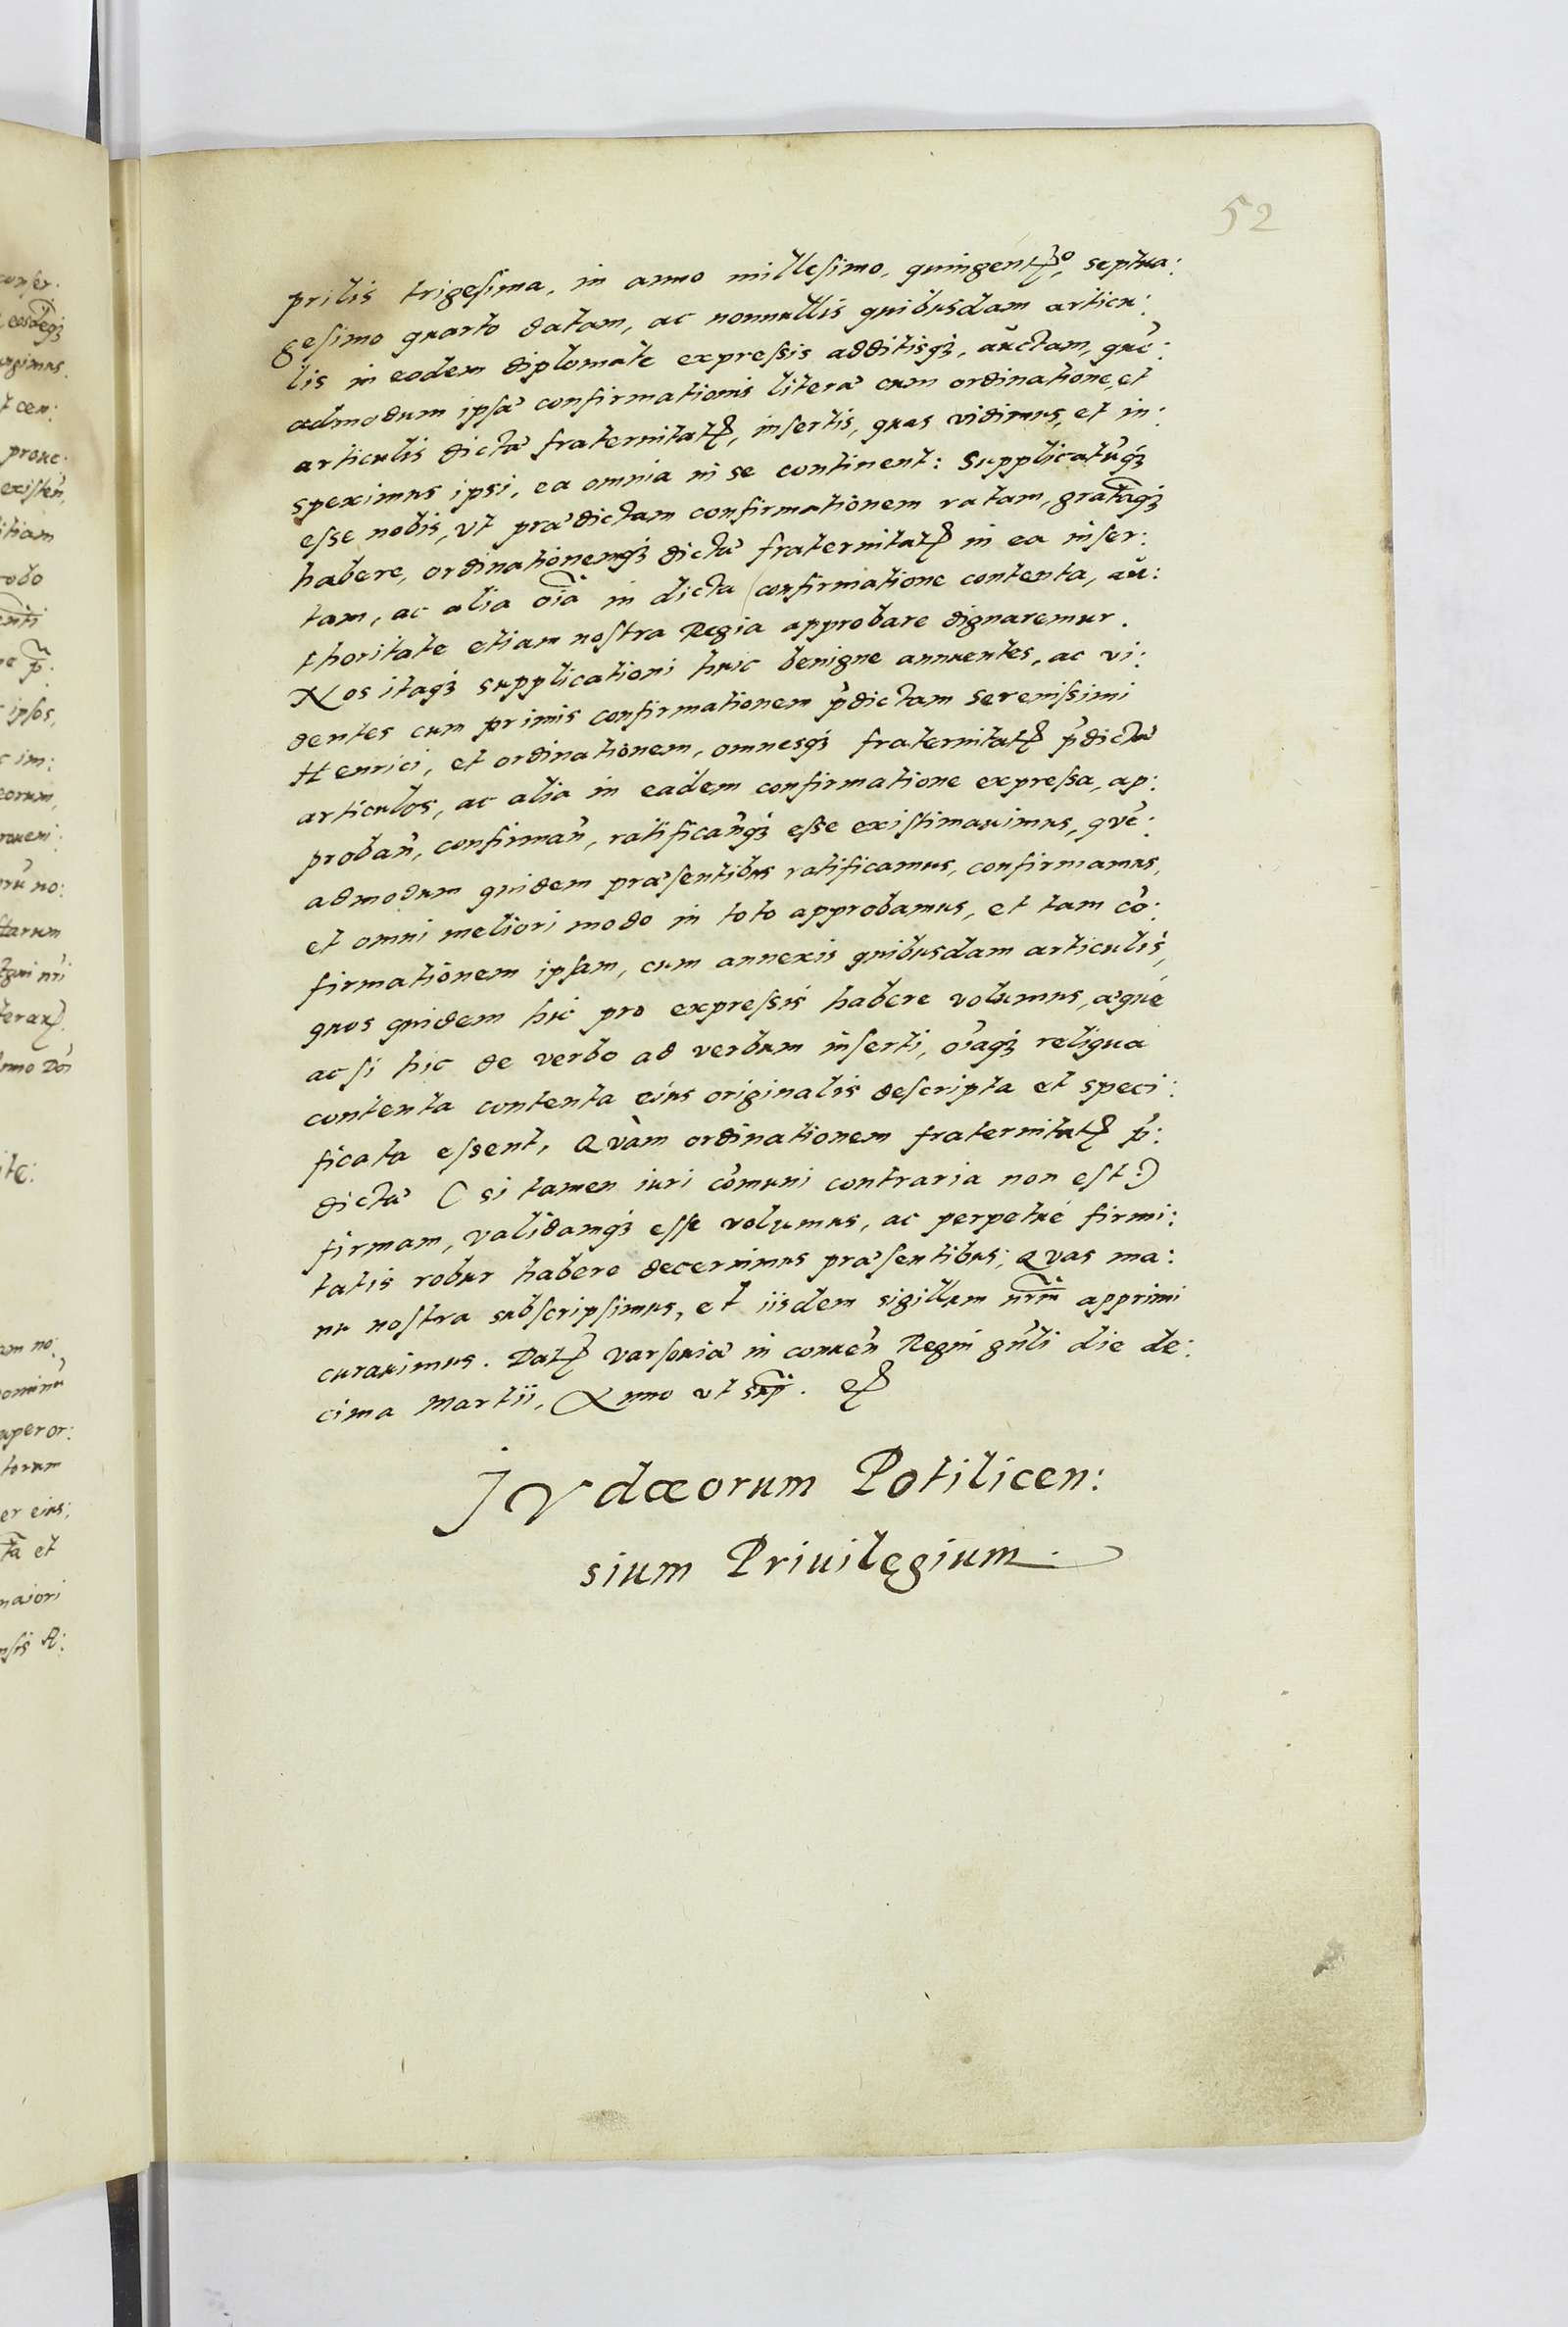 52
prilis trigesima, in anno millesimo, quingentꝭo, septua:
gesimo quarto datam, ac nonnullis quibusdam articu:
lis in eodem diplomate expressis additisqꝫ, auctam, quē:
admodum ipsæ confirmationis literæ cum ordinatione, et
articulis dictæ fraternitatꝭ, insertis, quas vidimus, et in:
speximus ipsi, ea omnia in se continent: Supplicatūqꝫ
esse nobis, vt prædictam confirmationem ratam, gratāqꝫ
habere, ordinationemqꝫ dictæ fraternitatꝭ in ea inser:
tam, ac alia oĩa in dicta confirmatione contenta, au:
thoritate etiam nostra Regia approbare dignaremur.
Nos itaqꝫ supplicationi huic benigne annuentes, ac vi:
dentes cum primis confirmationem p̄dictam Serenissimi
Henrici, et ordinationem, omnesqꝫ fraternitatꝭ p̄dictæ
articulos, ac alia in eadem confirmatione expressa, ap:
proban̄, confirman̄, ratifican̄qꝫ esse existimauimus, quē:
admodum quidem præsentibus ratificamus, confirmamus,
et omni meliori modo in toto approbamus, et tam cō:
firmationem ipsam, cum annexis quibusdam articulis,
quos quidem hic pro expressis habere volumus, æque
ac si hic de verbo ad verbum inserti, oīaqꝫ reliqua
contenta contenta eius originalis descripta et speci:
ficata essent, Quàm ordinationem fraternitatꝭ p̄:
dictæ (si tamen iuri cōmuni contraria non est:)
firmam, validamqꝫ esse volumus, ac perpetué firmi:
tatis robur habere decernimus præsentibus; Quas ma:
nu nostra subscripsimus, et iisdem sigillum nr̃m apprimi
curauimus. Datꝭ Varsouiæ in conuen̄ Regni gn̄li die de:
cima Martii, Anno vt sup̄. eꝭ
JVdæorum Potilicen:
sium Priuilęgium.